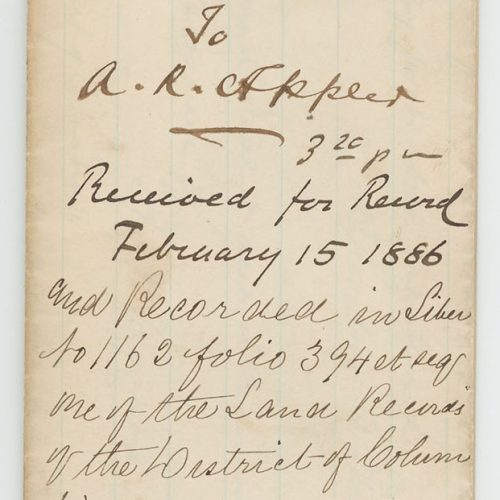 To
A. R. Appler
3 20 pm
Received for Record
February 15 1886
and Recorded in Liber
No 1162 folio 394 et seq
one of the Land Records
of the District of Colum